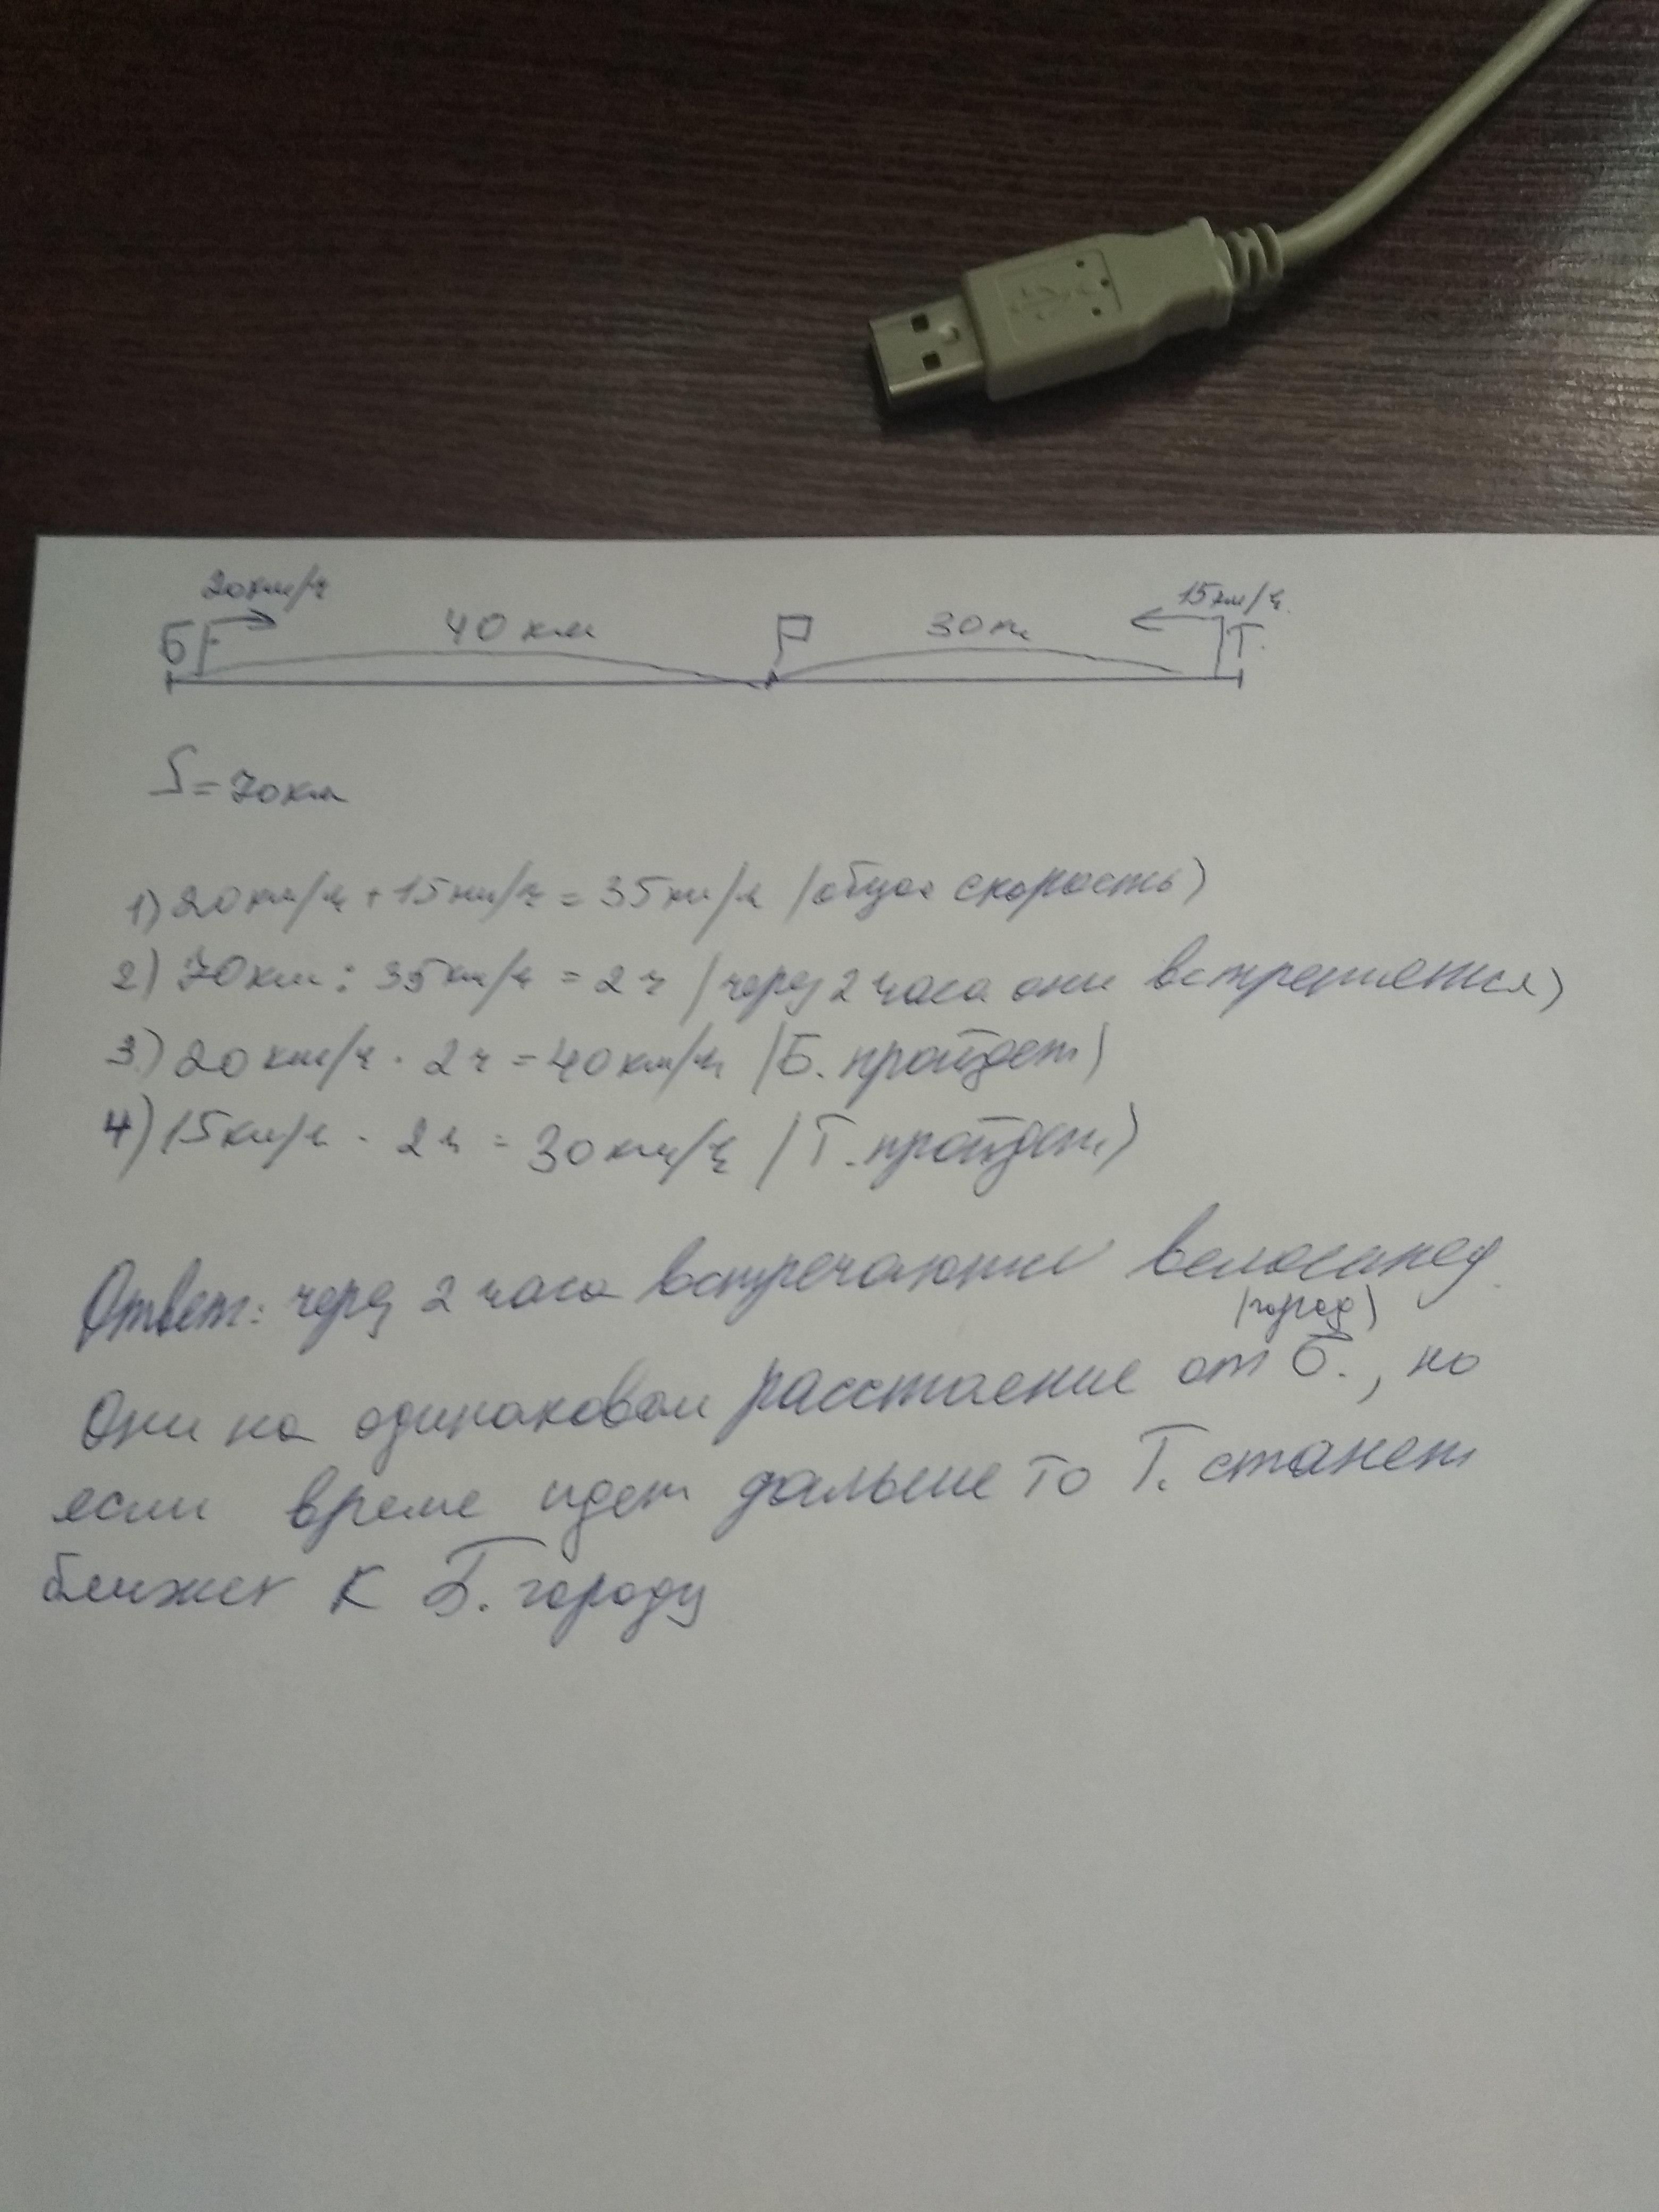 20км/ч 15км/ч.
Б 40 км 30км Т.
S = 70км
1) 20км/ч + 15км/ч = 35км/ч (общая скорость)
2) 70км : 35км/ч = 2ч (через 2 часа они встретятся)
3) 20км/ч · 2ч = 40км/ч (Б. пройдет)
4) 15км/ч · 2ч = 30км/ч (Т. пройдет)
Ответ: через 2 часа встречаются велосипед.
(город)
Они на одинаковом расстаение от Б., но
если време идет дальше то Т. станет
ближек к Б. городу